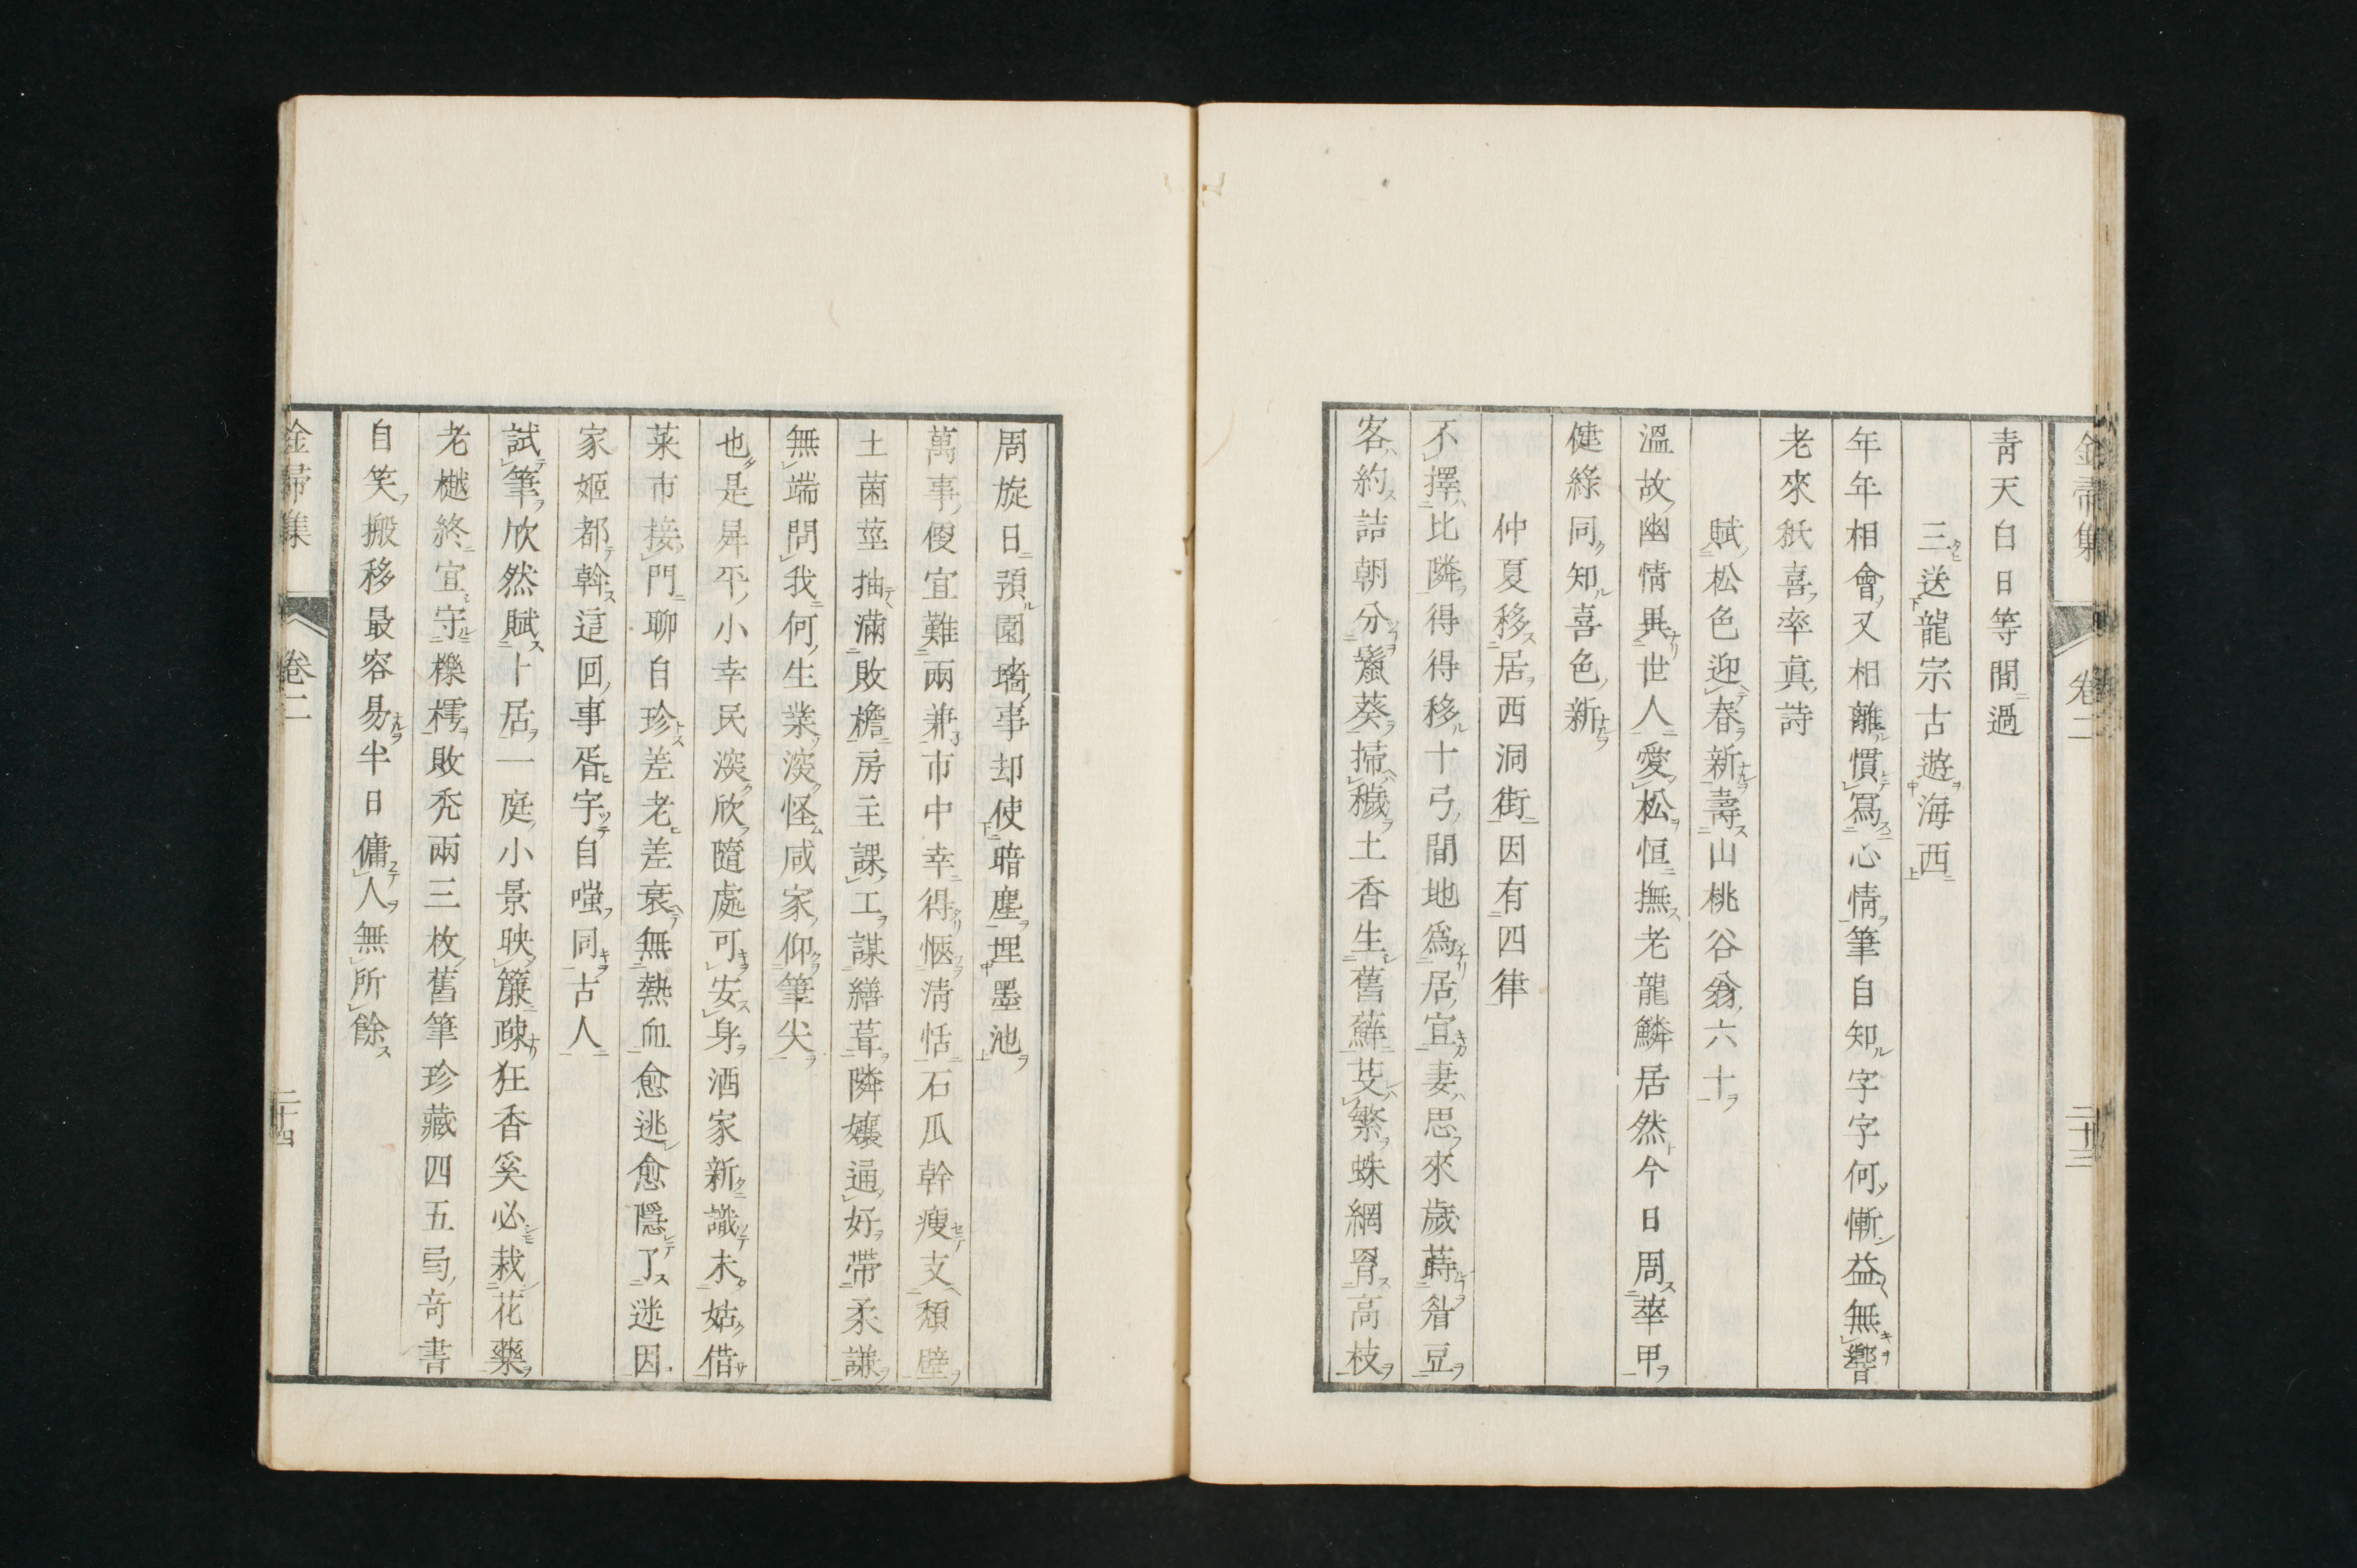 金帚集 卷二 二十三
青天白日等閒過
三送龍宗古遊海西
年年相會又相離慣寫心情筆自知字字何慚益無響
老來祇喜率真詩
賦松色迎春新壽山桃谷翁六十
溫故幽情異世人愛松恒撫老龍鱗居然今日周華甲
健綠同知喜色新
仲夏移居西洞街因有四律
不擇比隣得得移十弓間地爲居宜妻思來歲蒔眉豆
客約詰朝分蜀葵掃穢土香生舊蘚芟繁蛛網罥高枝
周旋日預園墻事却使暗塵埋墨池
萬事優宜難兩兼市中幸得愜淸恬石瓜幹瘦支頹壁
土菌莖抽滿敗檐房主課工謀繕葺隣孃通好帶柔謙
無端問我何生業淡怪咸家仰筆尖
也是昇平小幸民淡欣隨處可安身酒家新識未姑借
菜市接門聊自珍差老差衰無熱血愈逃愈隱了迷因
家姬都斡這回事胥宇自嗤同古人
試筆欣然賦卜居一庭小景映簾疎狂香奚必栽花藥
老樾終宜守櫟樗敗禿兩三枚舊筆珍藏四五弓奇書
自笑搬移最容易半日傭人無所餘
金帚集 卷二 二十四